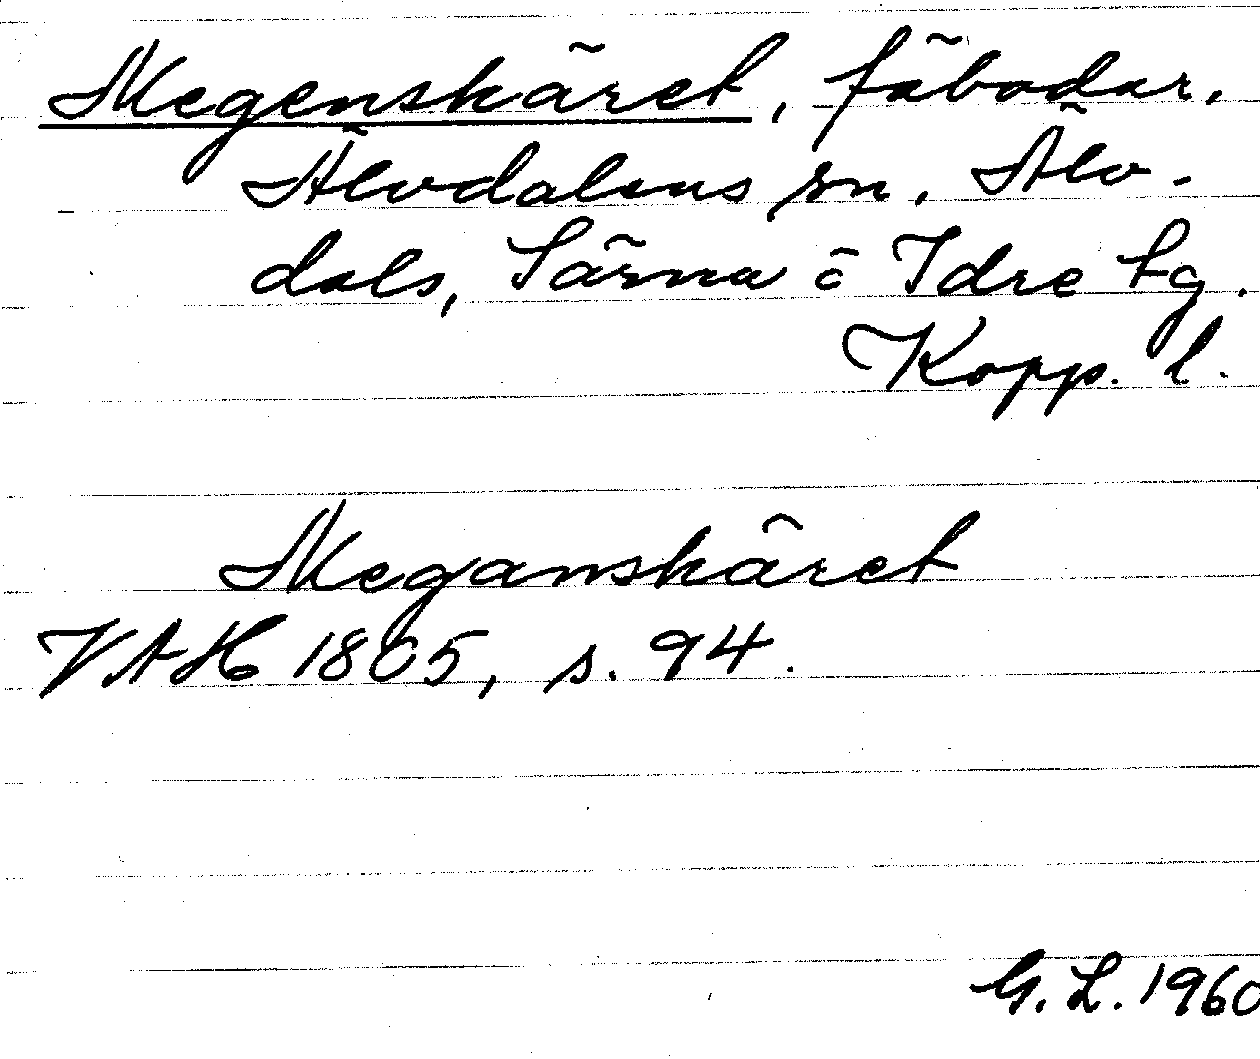 Megenskäret, fäbodar.
Älvdalens sn. Älv-
dals, Särna o Idre tg.
Kopp. l.
Meganskäret
VAH 1805, s. 94.
G. L. 1960